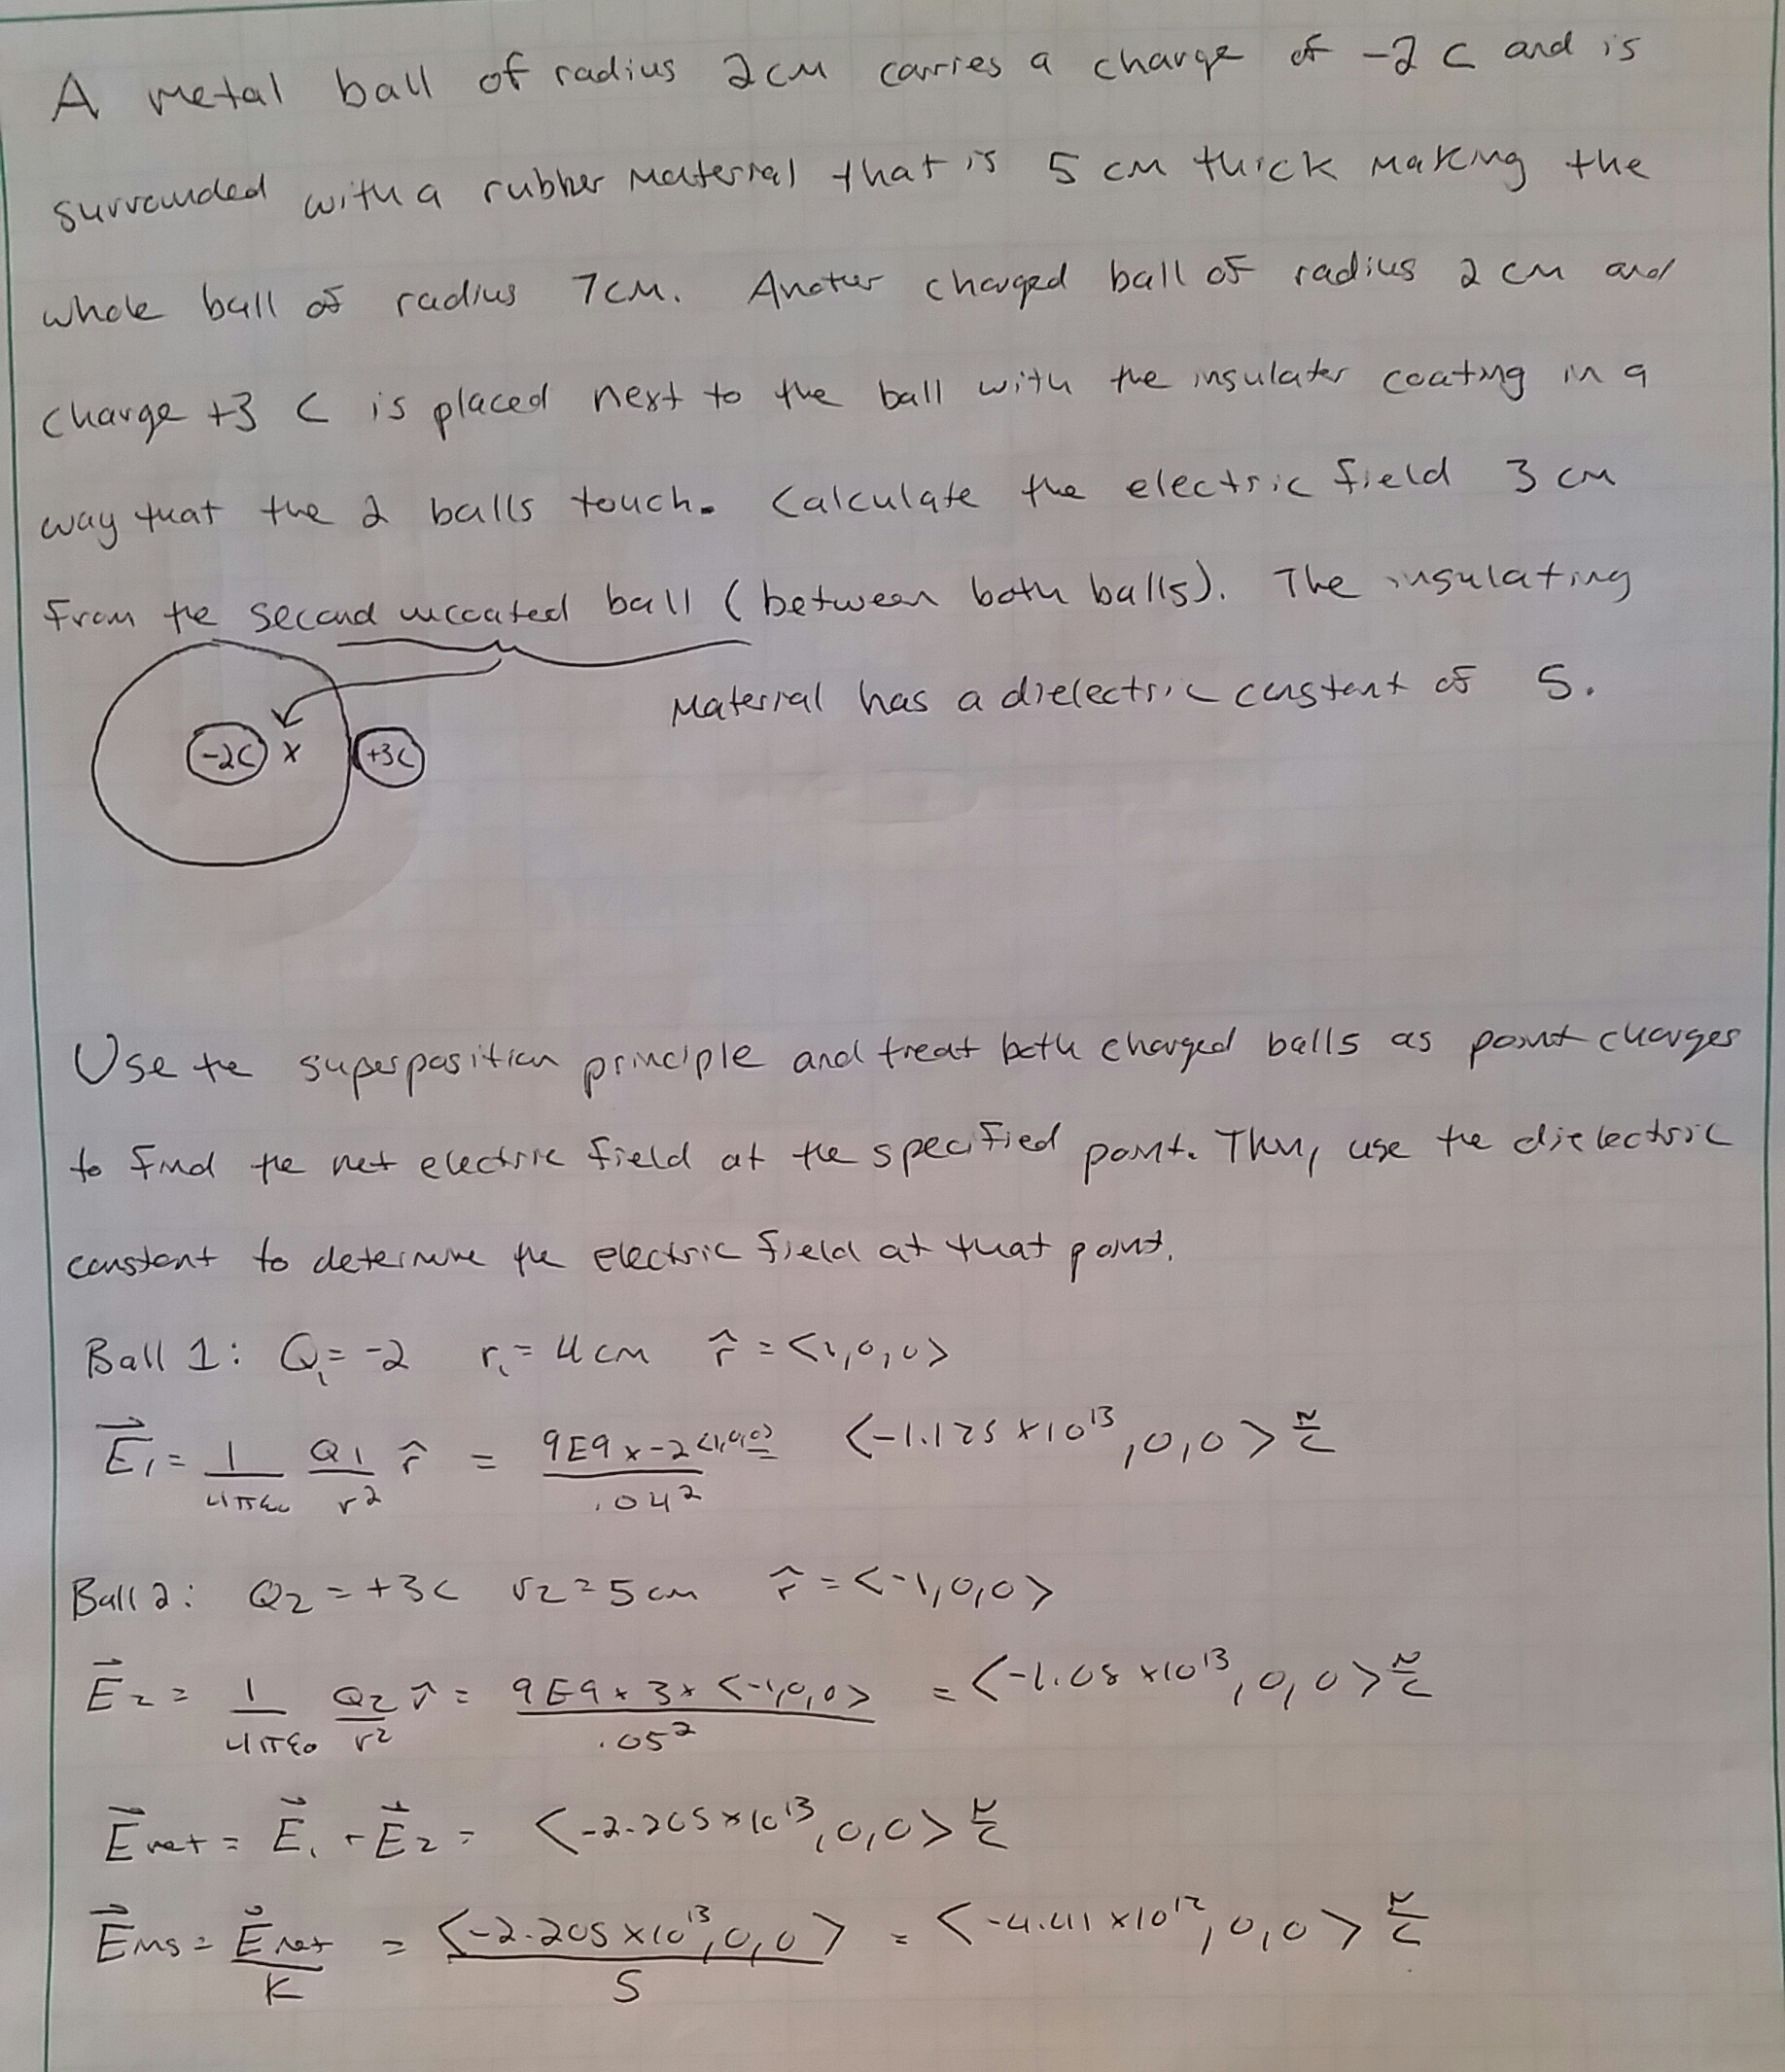 A metal ball of radius 2cm carries a charge of -2 C and is
surrounded with a rubber material that is 5 cm thick making the
whole ball of radius 7cm. Anoter charged ball of radius 2 cm and
charge +3 C is placed next to the ball with the insulater coating in a
way that the 2 balls touch. Calculate the electric field 3 cm
from the second uncoated ball (between both balls). The insulating
material has a dielectric constant of 5.
-2C x +3C
Use the superposition principle and treat both charged balls as point charges
to find the net electric field at the specified point. Then, use the dielectric
constant to determine the electric field at that point.
Ball 1: Q₁ = -2 r₁ = 4cm r̂ = <1,0,0>
E⃗₁ = 1/4πε₀ Q1/r² r̂ = 9E9 x -2<1,0,0>/.04² <-1.125 x 10¹³, 0, 0> N/C
Ball 2: Q₂ = +3C r₂ = 5cm r̂ = <-1,0,0>
E⃗₂ = 1/4πε₀ Q2/r² r̂ = 9E9 x 3 x <-1,0,0>/.05² = <-1.08 x10¹³, 0, 0> N/C
E⃗net = E⃗₁ + E⃗₂ = <-2.205 x 10¹³, 0, 0> N/C
E⃗ins = E⃗net/K = <-2.205 x10¹³, 0, 0>/5 = <-4.41 x10¹², 0, 0> N/C